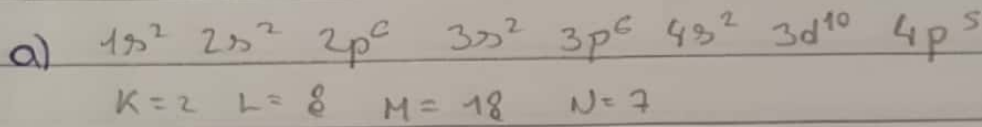 a) 1s² 2s² 2p⁶ 3s² 3p⁶ 4s² 3d¹⁰ 4p⁵
K=2 L=8 M=18 N=7